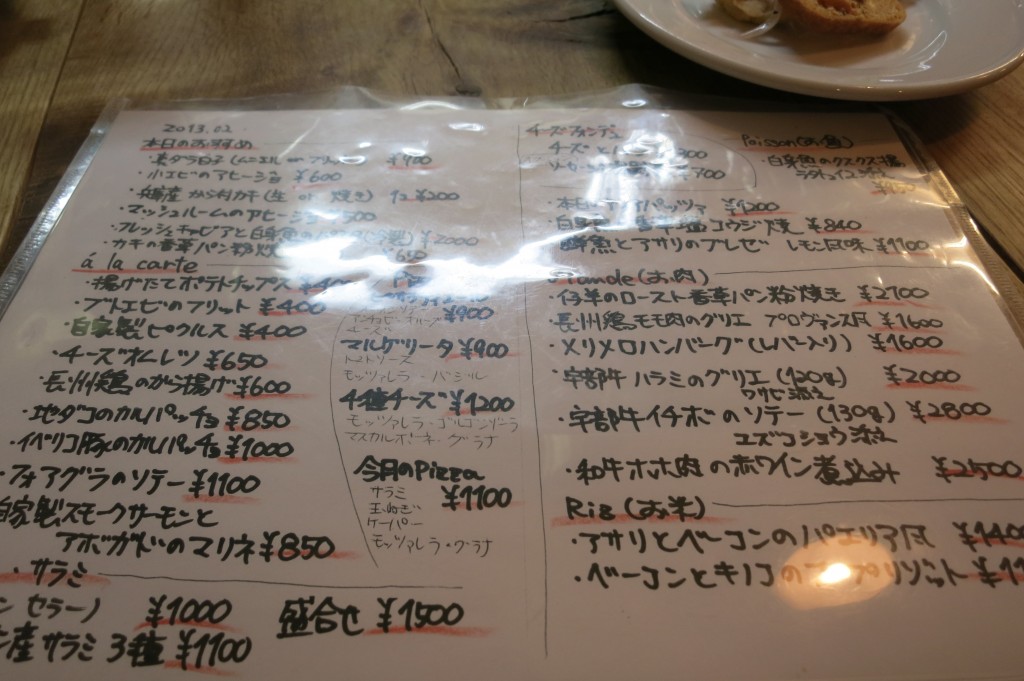 2013.02
本日のおすすめ
真ダラ白子(ムニエル or フリッ ¥900
・小エビのアヒージョ ¥600
・兵庫産 から付カキ(生 or 焼き) 1コ ¥200
・マッシュルームのアヒージョ ¥500
・フレッシュキャビアと白身魚の ¥2000
・カキの香草パン粉焼 650
á la carte
・揚げたてポテトチップス ¥400
・ブトエビのフリット ¥400
・自家製ピクルス ¥400
・チーズオムレツ ¥650
・長州鶏のから揚げ ¥600
・地ダコのカルパッチョ ¥850
・イベリコ豚のカルパッチョ ¥1000
・フォアグラのソテー ¥1100
自家製スモークサーモンと
アボガドのマリネ ¥850
・サラミ
ン セラーノ ¥1000
産 サラミ 3種 ¥1100
盛合せ ¥1500
¥900
マルゲリータ ¥900
トマトソース
モッツァレラ・バジル
4種チーズ ¥1200
モッツァレラ・ゴルゴンゾーラ
マスカルポーネ・グラナ
今月のPizza
¥1100
サラミ
玉ねぎ
ケーパー
モッツァレラ・グラナ
チーズフォンデュ
チーズと
700
Poisson(お魚)
・白身魚のクスクス揚
ラタトゥイユ添え
¥1200
塩コウジ焼 ¥840
鮮魚とアサリのブレゼ レモン風味 ¥1100
Viande(お肉)
・仔羊のロースト香草パン粉焼き ¥2700
・長州鶏モモ肉のグリエ プロヴァンス風 ¥1600
・メリメロハンバーグ(レバー入り) ¥1600
・宇部牛 ハラミのグリエ(120g) ¥2000
ワサビ添え
・宇部牛イチボのソテー(130g) ¥2800
ユズコショウ添え
・和牛ホホ肉の赤ワイン煮込み ¥2500
Riz(お米)
・アサリとベーコンのパエリア風 ¥1400
・ベーコンとキノコの リゾット ¥11